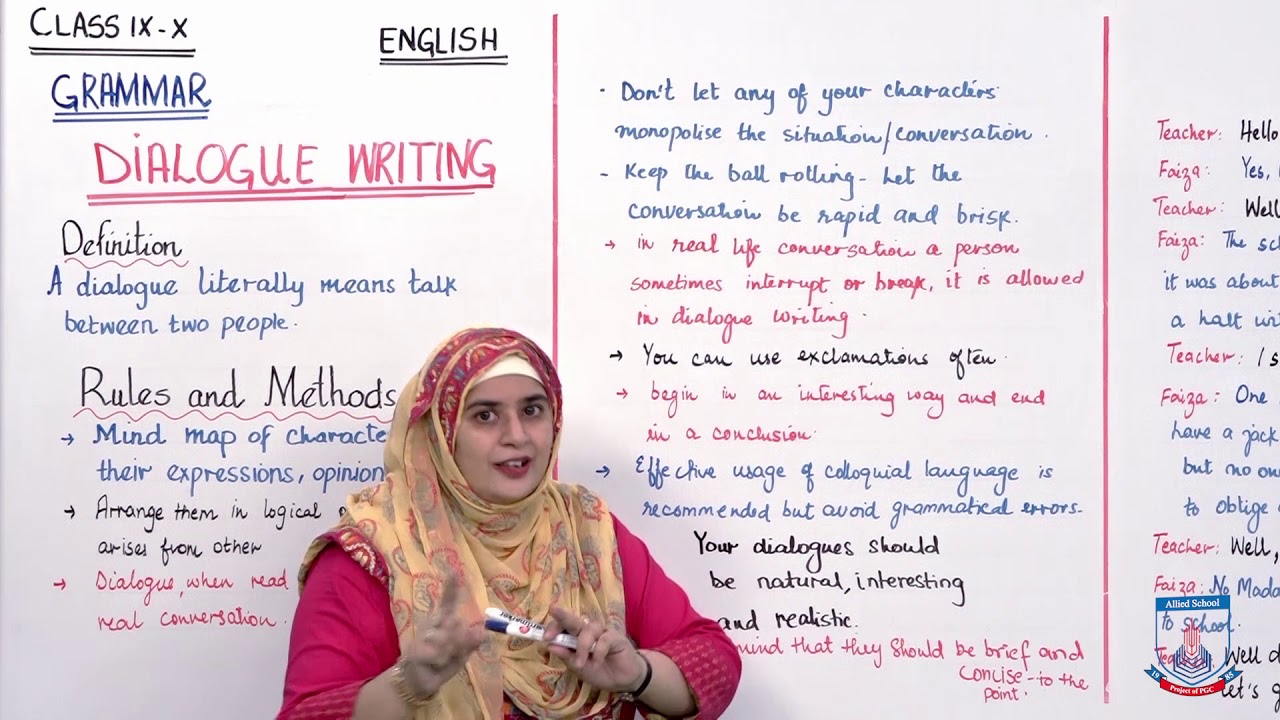 CLASS IX-X
ENGLISH
GRAMMAR
DIALOGUE WRITING
Definition
A dialogue literally means talk
between two people.
Rules and Methods
→ Mind map of characte
their expressions, opinion
→ Arrange them in logical
arises from other
→ Dialogue, when read
real conversation.
· Don't let any of your characters
monopolise the situation/conversation.
- Keep the ball rolling- Let the
conversation be rapid and brisk.
→ in real life conversation a person
sometimes interrupt or break, it is allowed
in dialogue writing.
→ You can use exclamations often.
→ begin in an interesting way and end
in a conclusion.
→ Effective usage of colloquial language is
recommended but avoid grammatical errors.
Your dialogues should
be natural, interesting
and realistic.
mind that they should be brief and
concise - to the
point.
Teacher: Hello
Faiza: Yes,
Teacher: Well
Faiza: The sc
it was about
a halt in
Teacher: I s
Faiza: One
have a jack
but no on
to oblige
Teacher: Well,
Faiza: No Mada
to school.
Well d
Let's g
Allied School
1985
Project of PGC